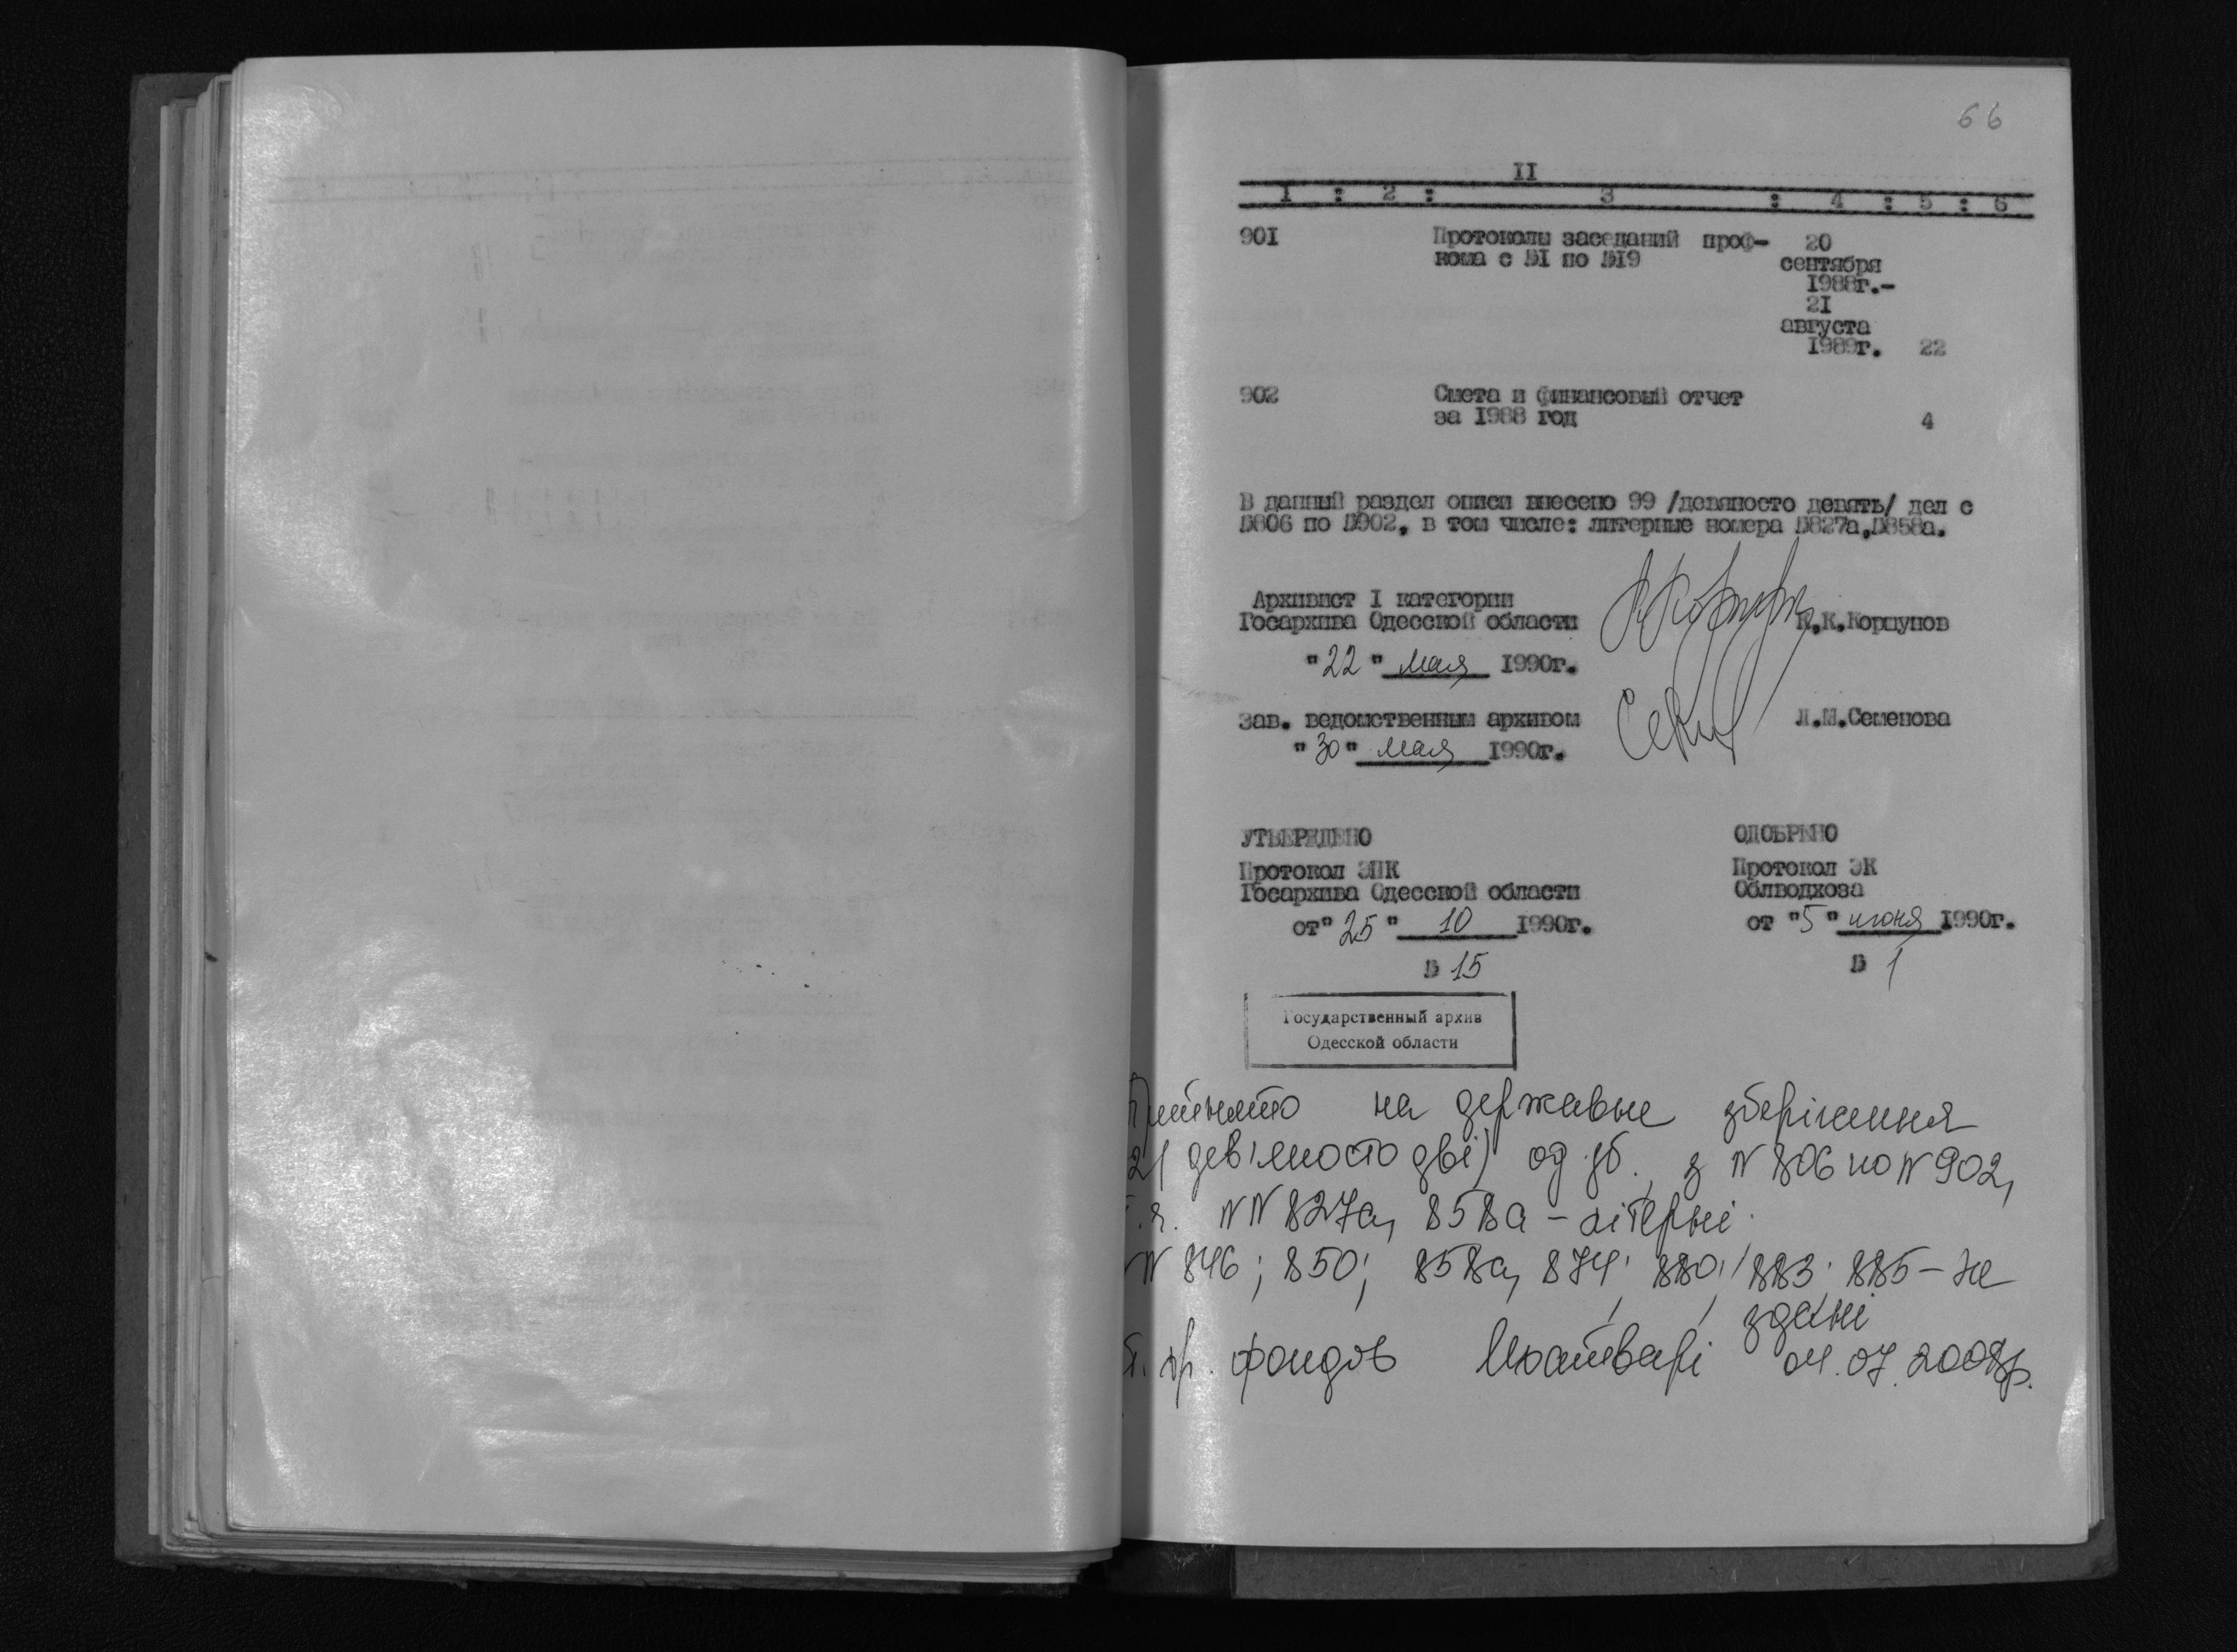 66
II
1 : 2 : 3 : 4 : 5 : 6
90I Протоколы заседаний проф- 20
кома с №I по №I9 сентября
I988г.-
2I
августа
I989г. 22
902 Смета и финансовый отчет
за I988 год 4
В данный раздел описи внесено 99 /девяносто девять/ дел с
№806 по №902, в том числе: литерные номера №827а,№858а.
Архивист I категории
Госархива Одесской области К.К.Коршунов
"22" мая I990г.
Зав. ведомственным архивом Л.М.Семенова
"30" мая I990г.
УТВЕРЖДЕНО ОДОБРЕНО
Протокол ЭПК Протокол ЭК
Госархива Одесской области Облводхоза
от"25" 10 I990г. от "5" июня I990г.
№ 15 № 1
Государственный архив
Одесской области
Прийнято на державне зберігання
2( девʼяносто дві) од. зб. з N 806 по N 902,
NN 827а, 858а – літерні.
N 846; 850; 858а, 874; 880; 883; 885 – не
здані
хр. фондов 04.07.2008р.